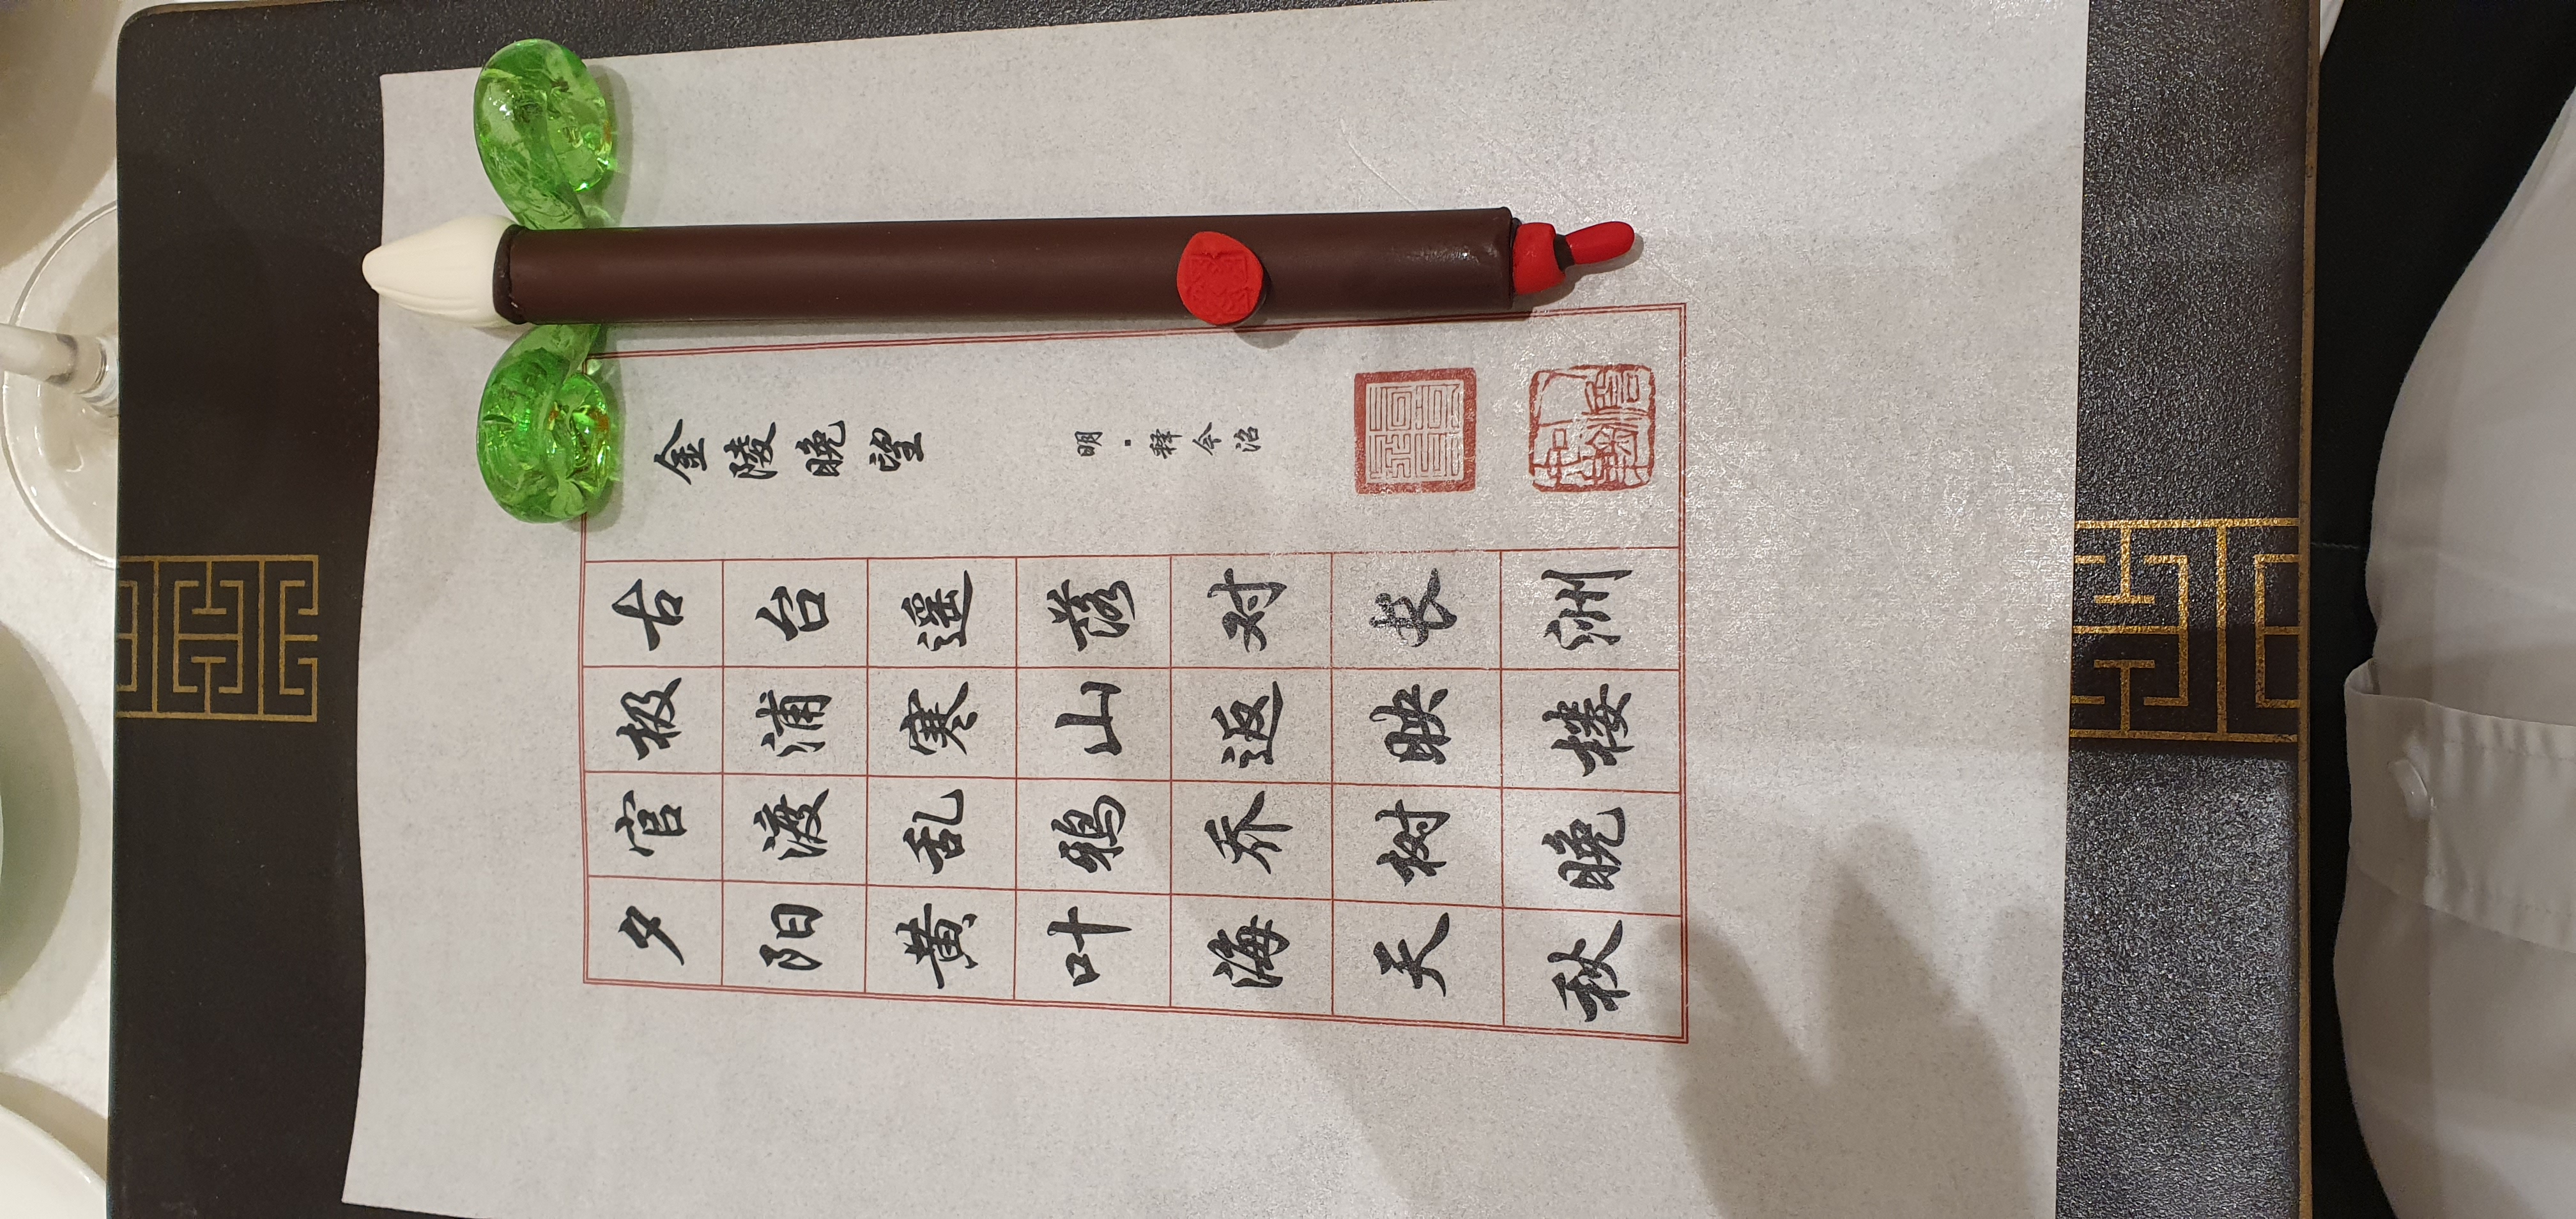 金陵晚望 明·释今沼
古台遥落对长洲
极浦寒山返映楼
官渡乱鸦乔树晚
夕阳黄叶海天秋